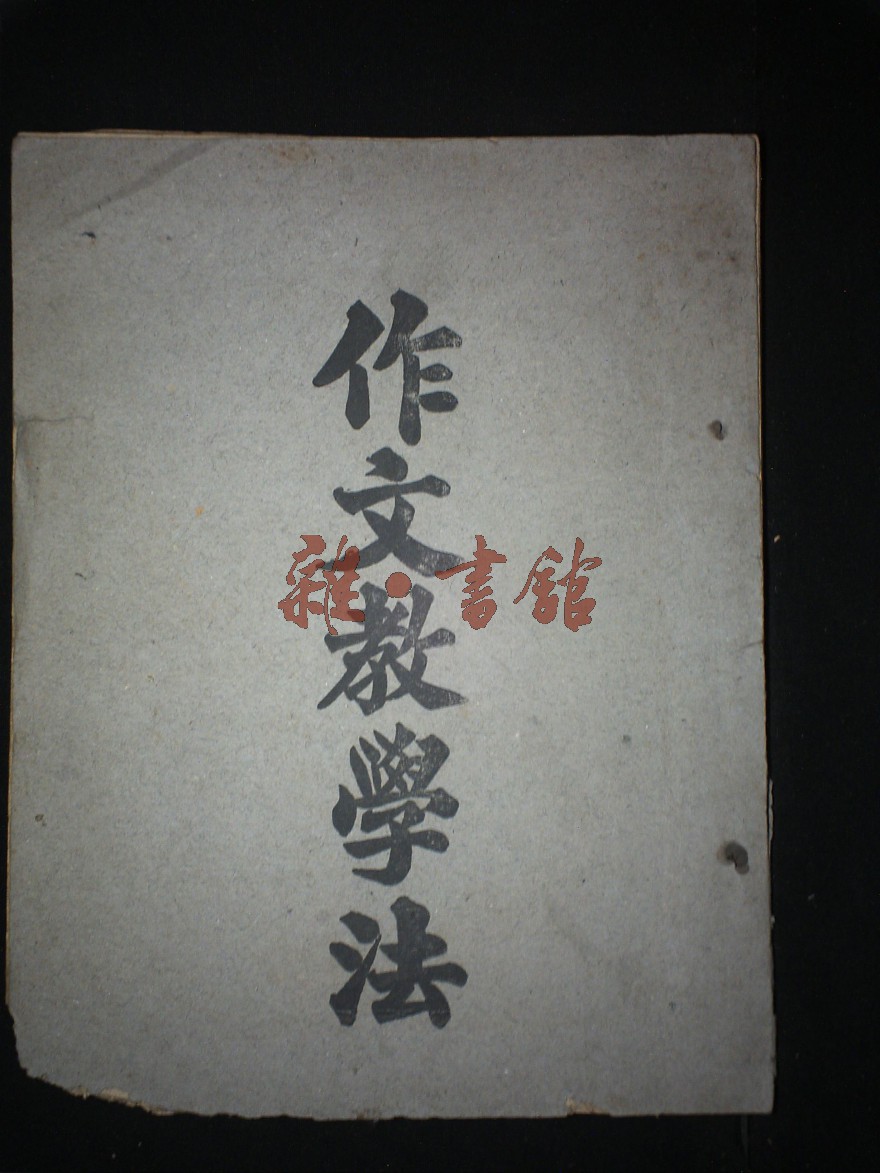 作文教學法
雜·書館